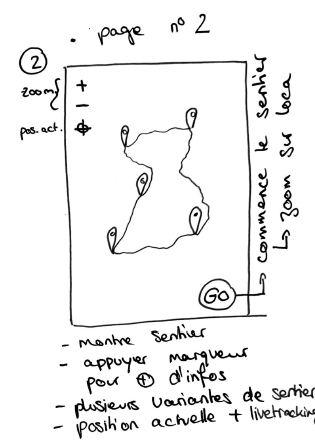 . page n° 2
2
zoom { +
-
pos. act.
GO
→ commence le sentier
↳ zoom sur loca
- montre sentier
- appuyer marqueur
pour ⊕ d'infos
- plusieurs variantes de sentier
- position actuelle + livetracking